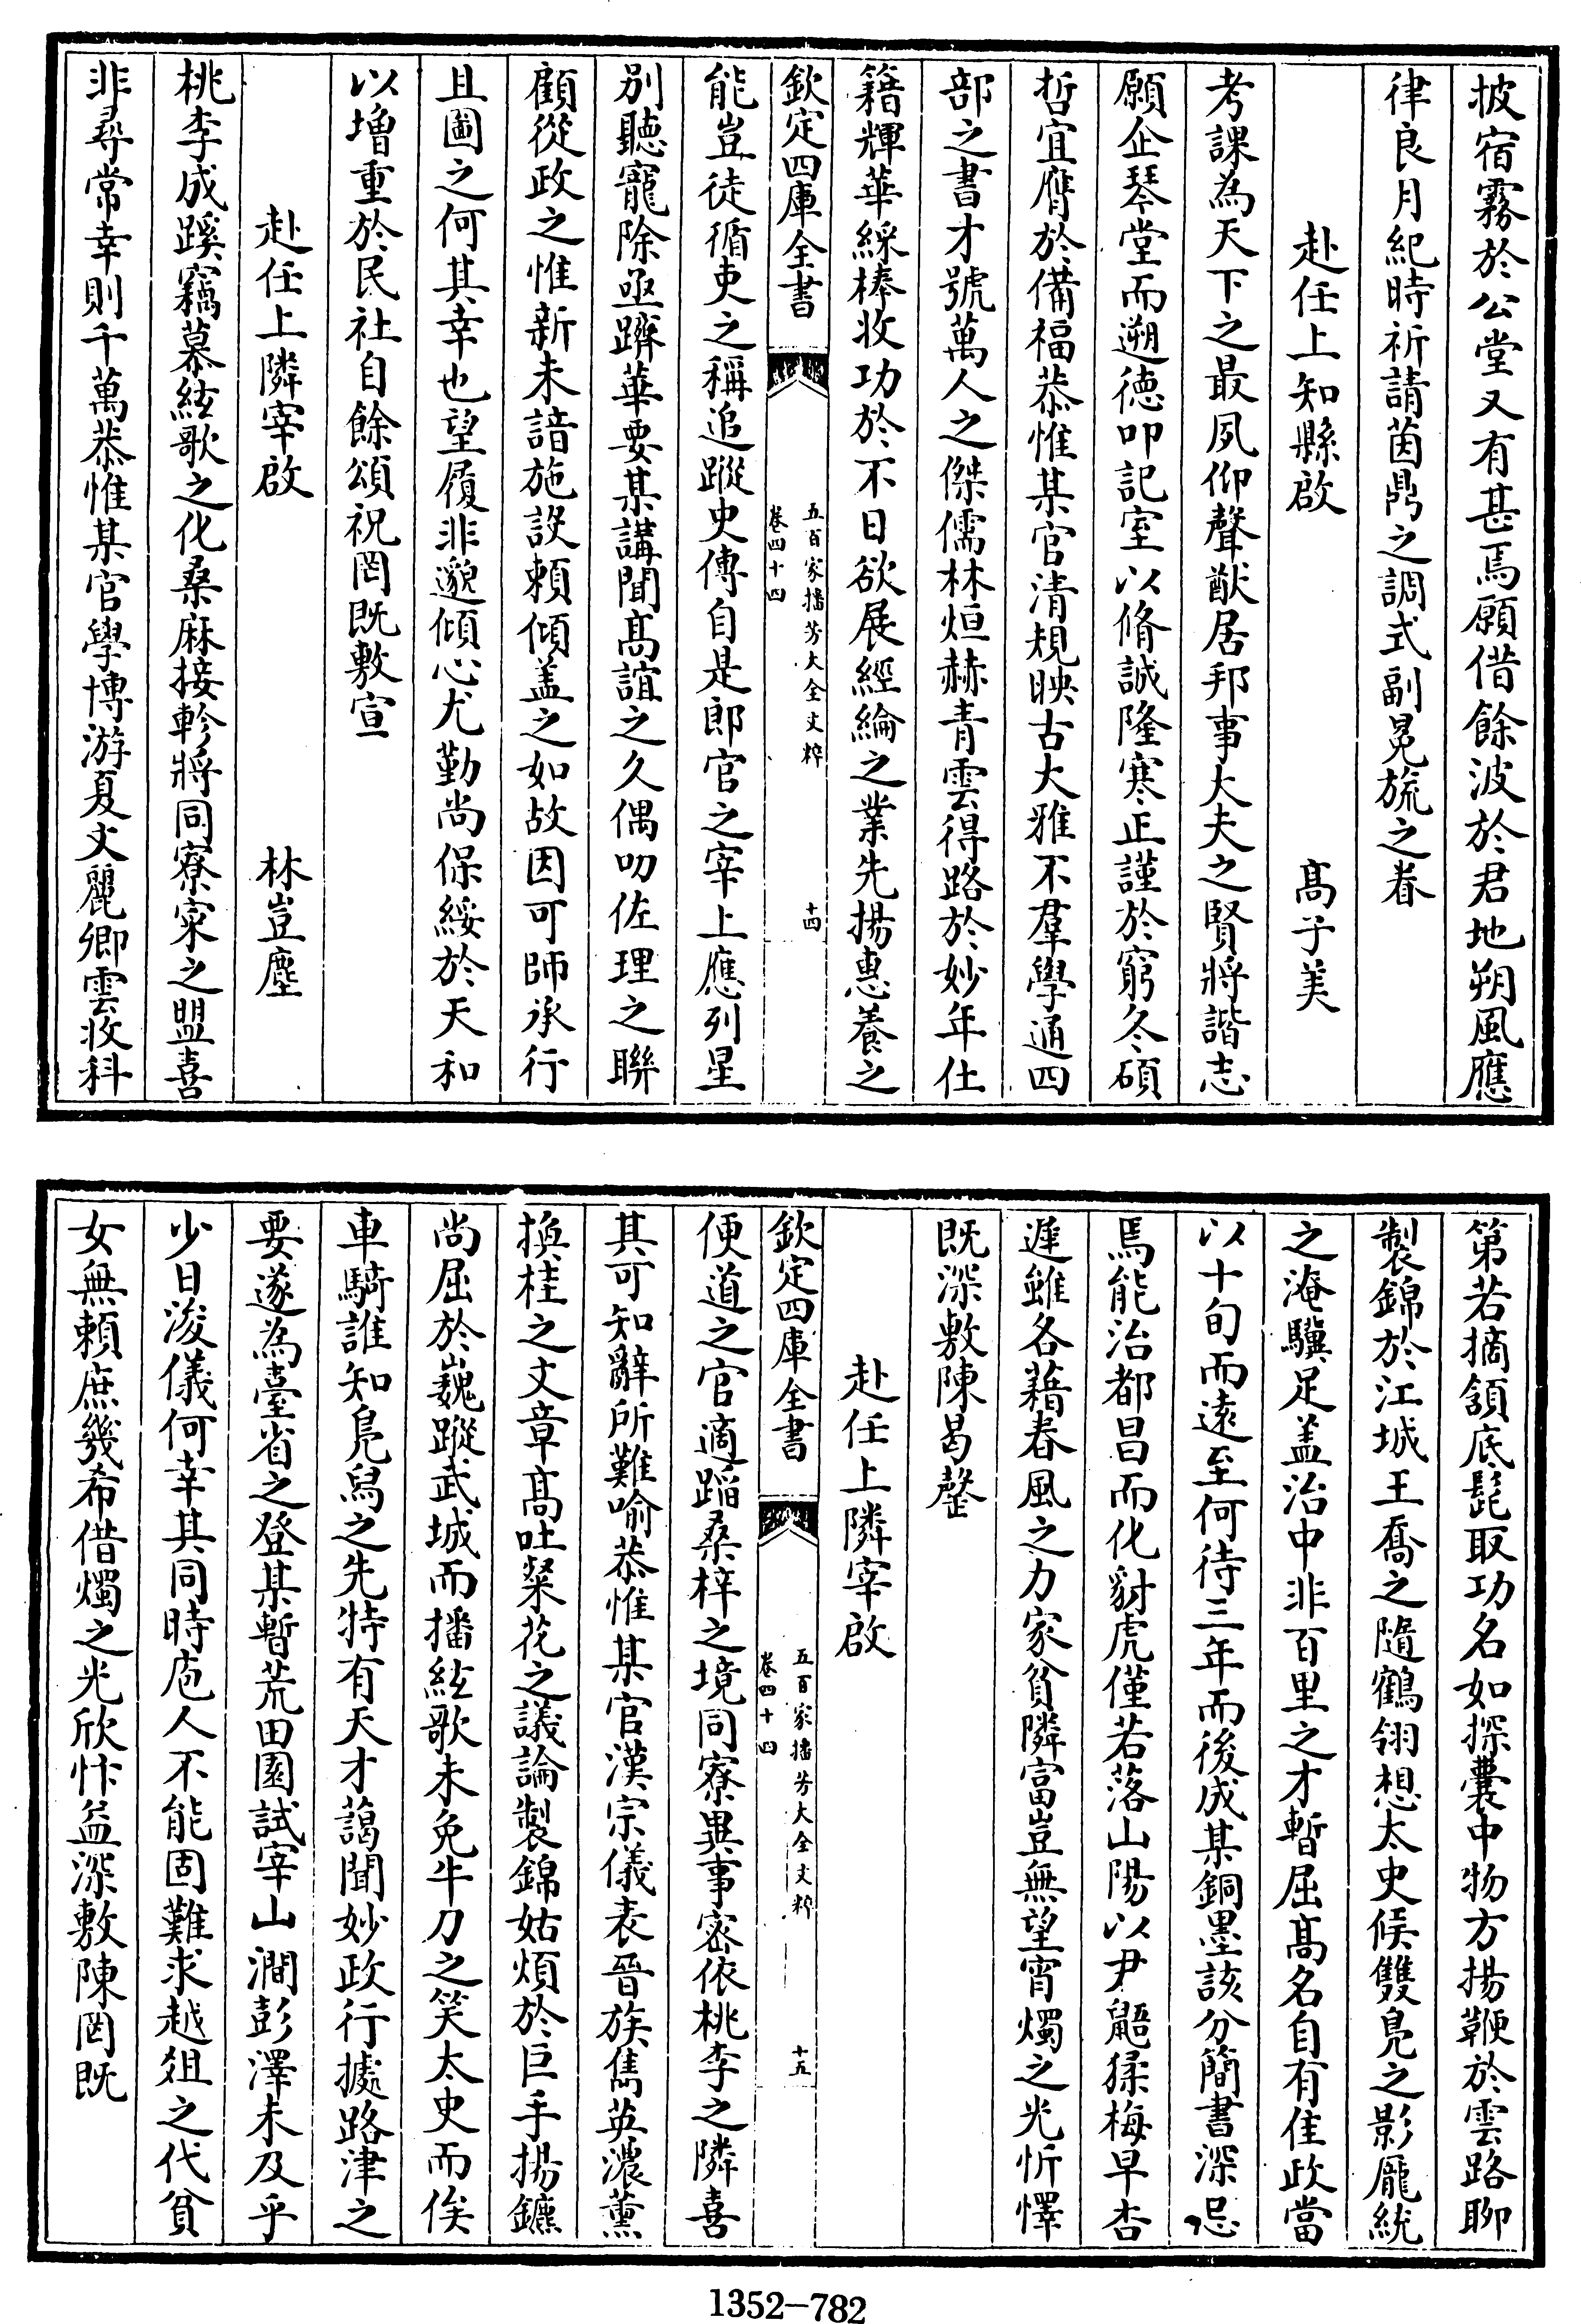 披宿霧於公堂又有甚焉願借餘波於君地朔風應
律良月紀時祈請茵鼎之調式副冕旒之眷
赴任上知縣啟 髙子美
考課為天下之最夙仰聲猷居邦事大夫之賢將諧志
願企琴堂而遡德叩記室以脩誠隆寒正謹於窮冬碩
哲宜膺於備福恭惟某官清規映古大雅不羣學通四
部之書才號萬人之傑儒林烜赫青雲得路於妙年仕
籍輝華綵棒收功於不日欲展經綸之業先揚惠養之
欽定四庫全書 五百家播芳大全文粹 卷四十四 十四
能豈徒循吏之稱追蹤史傳自是郎官之宰上應列星
別聽寵除亟躋華要某講聞髙誼之久偶叨佐理之聯
顧從政之惟新未諳施設頼傾盖之如故因可師承行
且圖之何其幸也望履非邈傾心尤勤尚保綏於天和
以増重於民社自餘頌祝罔既敷宣
赴任上隣宰啟 林豈塵
桃李成蹊竊慕絃歌之化桑麻接軫將同寮寀之盟喜
非尋常幸則千萬恭惟某官學博游夏文麗卿雲收科
第若摘頷底髭取功名如探囊中物方揚鞭於雲路聊
製錦於江城王喬之隨鶴翎想太史候雙鳬之影龐統
之淹驥足盖治中非百里之才暫屈髙名自有佳政當
以十旬而遠至何待三年而後成某銅墨該分簡書深忌
焉能治都昌而化豺虎僅若落山陽以尹鼯猱梅早杏
遲雖各藉春風之力家貧隣富豈無望宵燭之光忻懌
既深敷陳曷罄
赴任上隣宰啟
欽定四庫全書 五百家播芳大全文粹 卷四十四 十五
便道之官適蹈桑梓之境同寮異事密依桃李之隣喜
其可知辭所難喻恭惟某官漢宗儀表晉族雋英濃薰
換桂之文章髙吐粲花之議論製錦姑煩於巨手揚鑣
尚屈於巍蹤武城而播絃歌未免牛刀之笑太史而俟
車騎誰知鳬舄之先特有天才藹聞妙政行據路津之
要遂為臺省之登某暫荒田園試宰山澗彭澤未及乎
少日浚儀何幸其同時庖人不能固難求越俎之代貧
女無頼庶幾希借燭之光欣忭益深敷陳罔既
1352-782